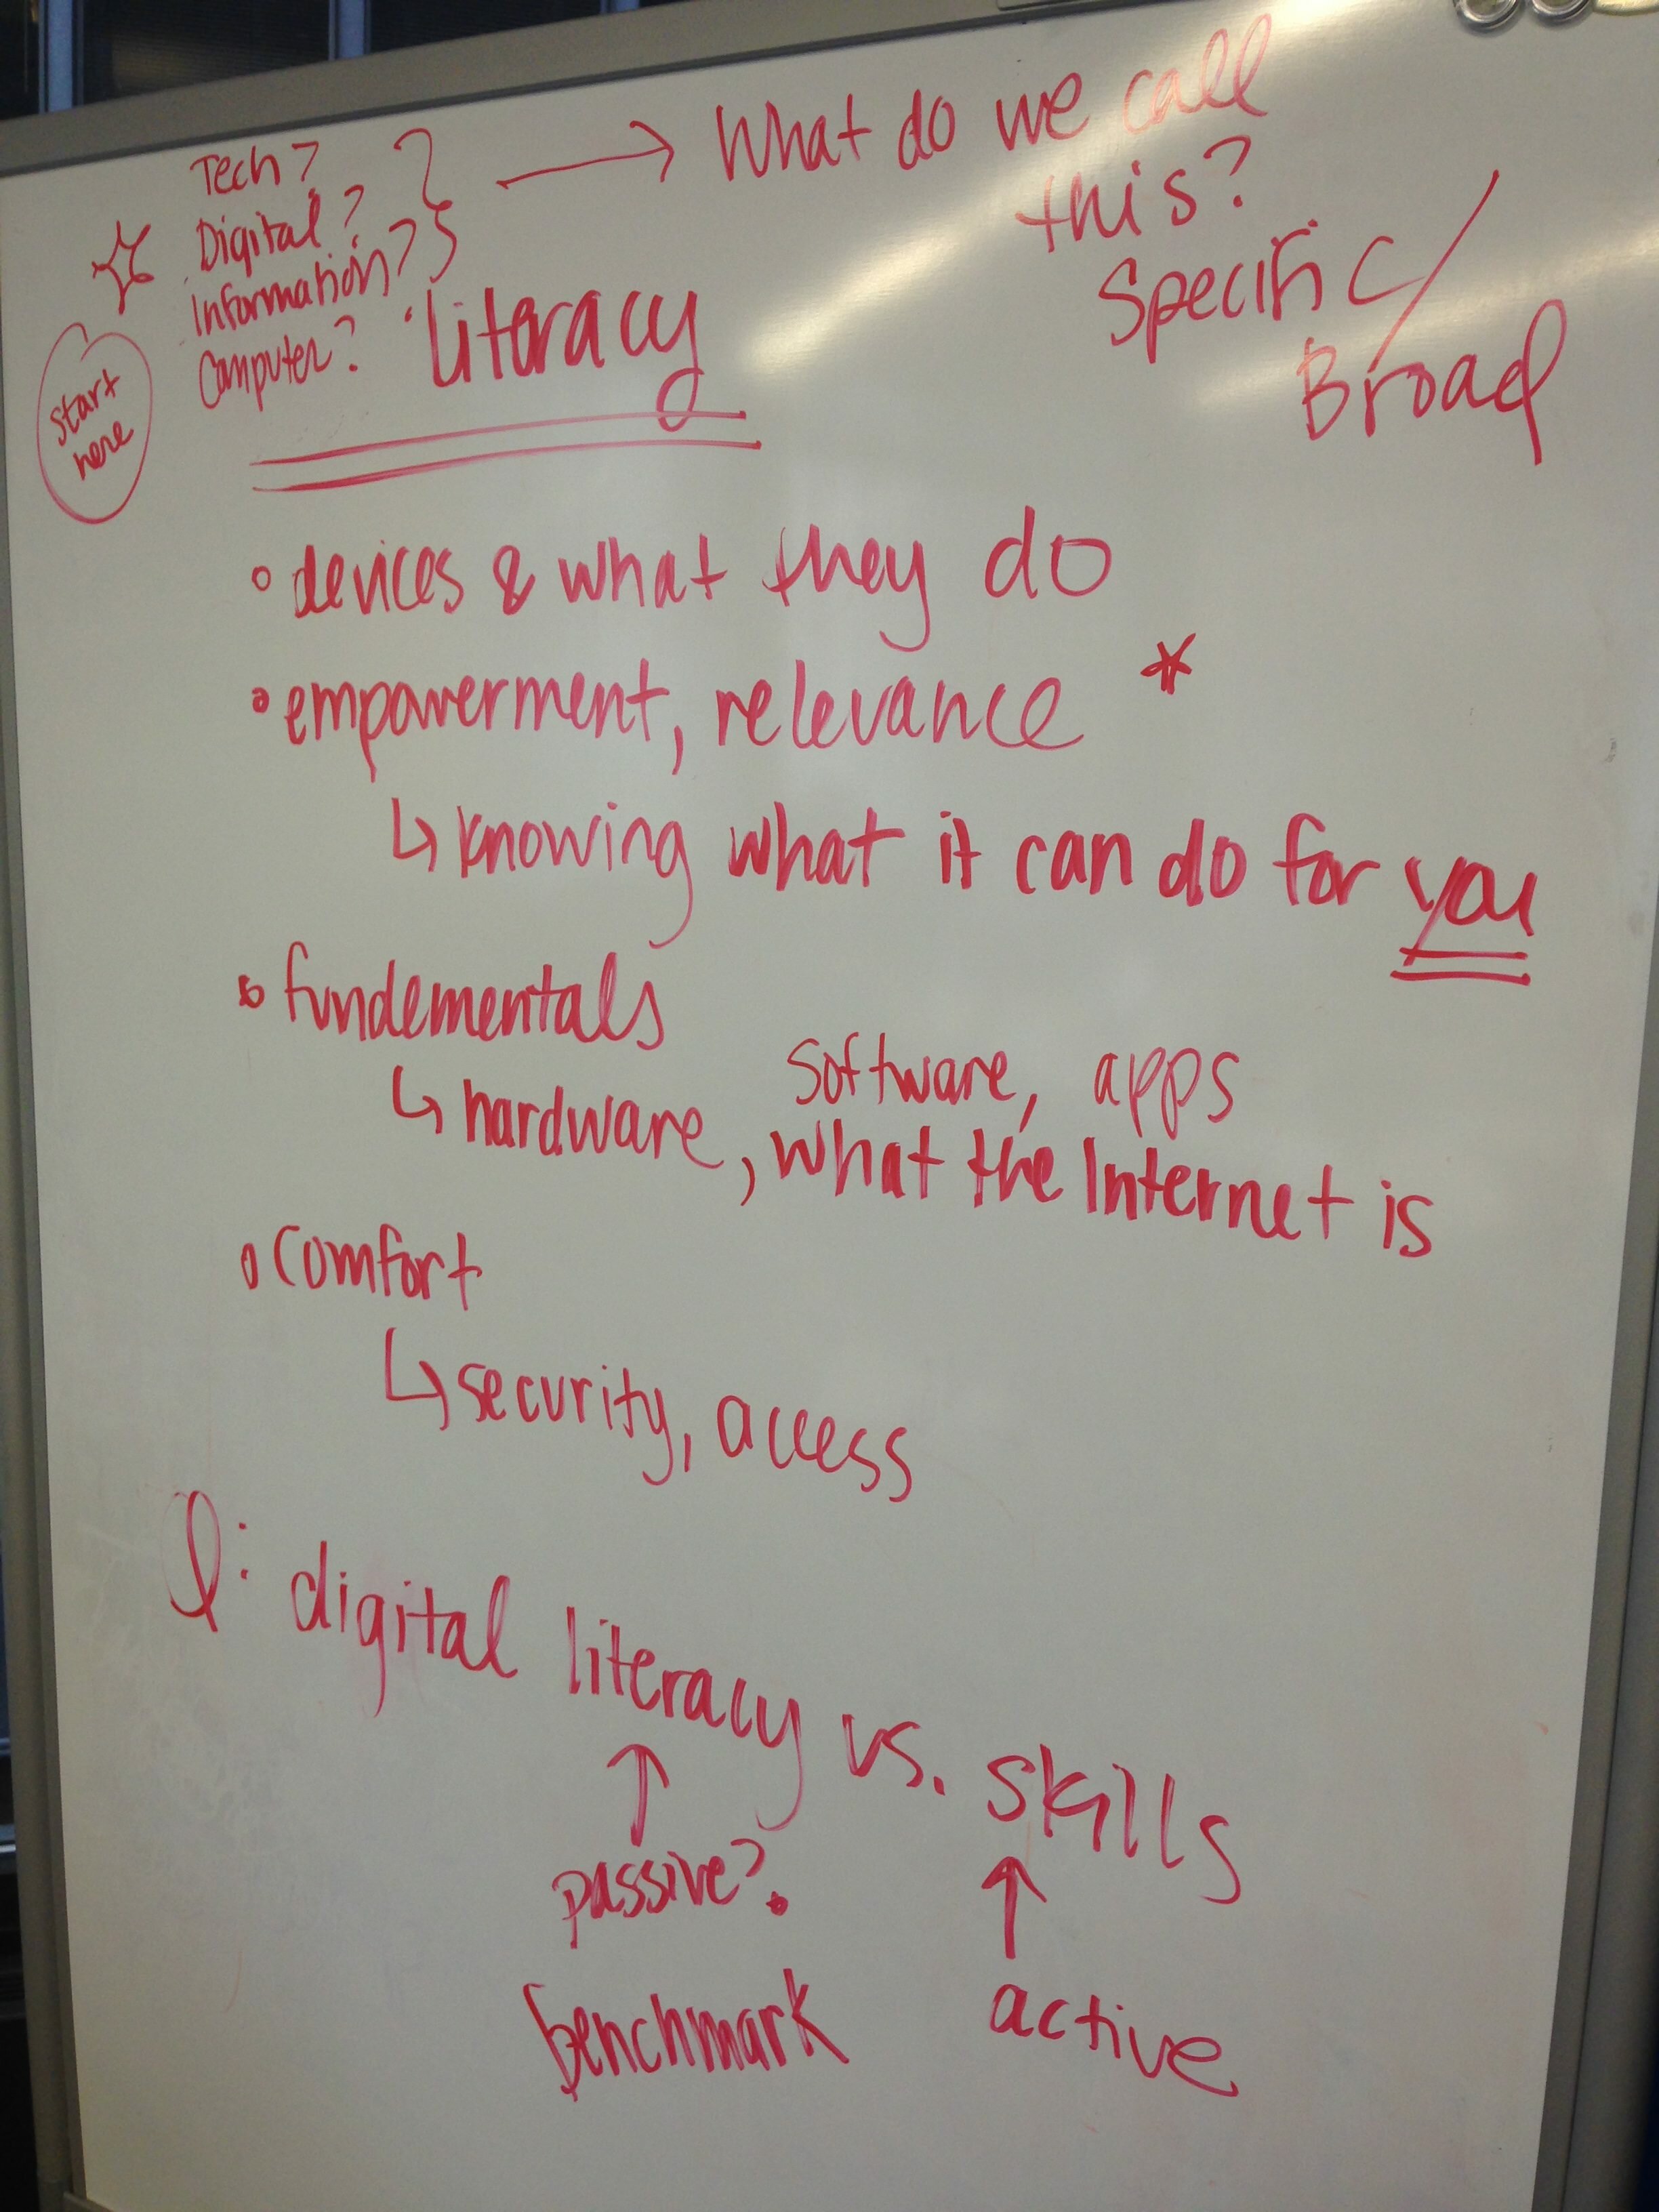 Tech?
Digital?
Information?
Computer?
Literacy
→ What do we call
this?
Specific/
Broad
start
here
◦ devices & what they do
◦ empowerment, relevance *
↳ knowing what it can do for you
◦ fundementals
software, apps
↳ hardware, what the Internet is
◦ comfort
↳ security, access
Q: digital literacy vs. skills
↑ ↑
passive?
benchmark active